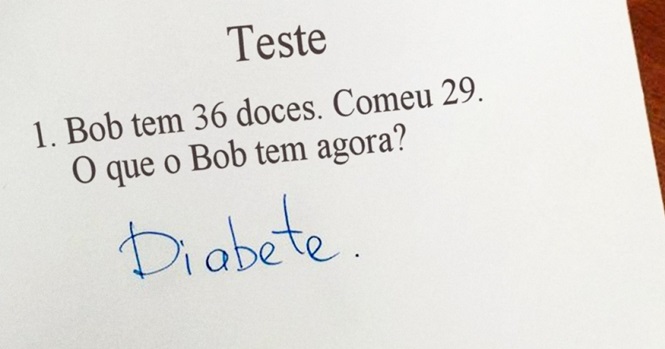 Teste
1. Bob tem 36 doces. Comeu 29.
O que o Bob tem agora?
Diabete.